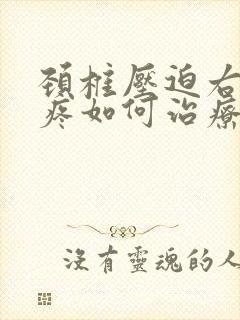 頚柱壓迫右
疼如何治療
沒有靈魂的人